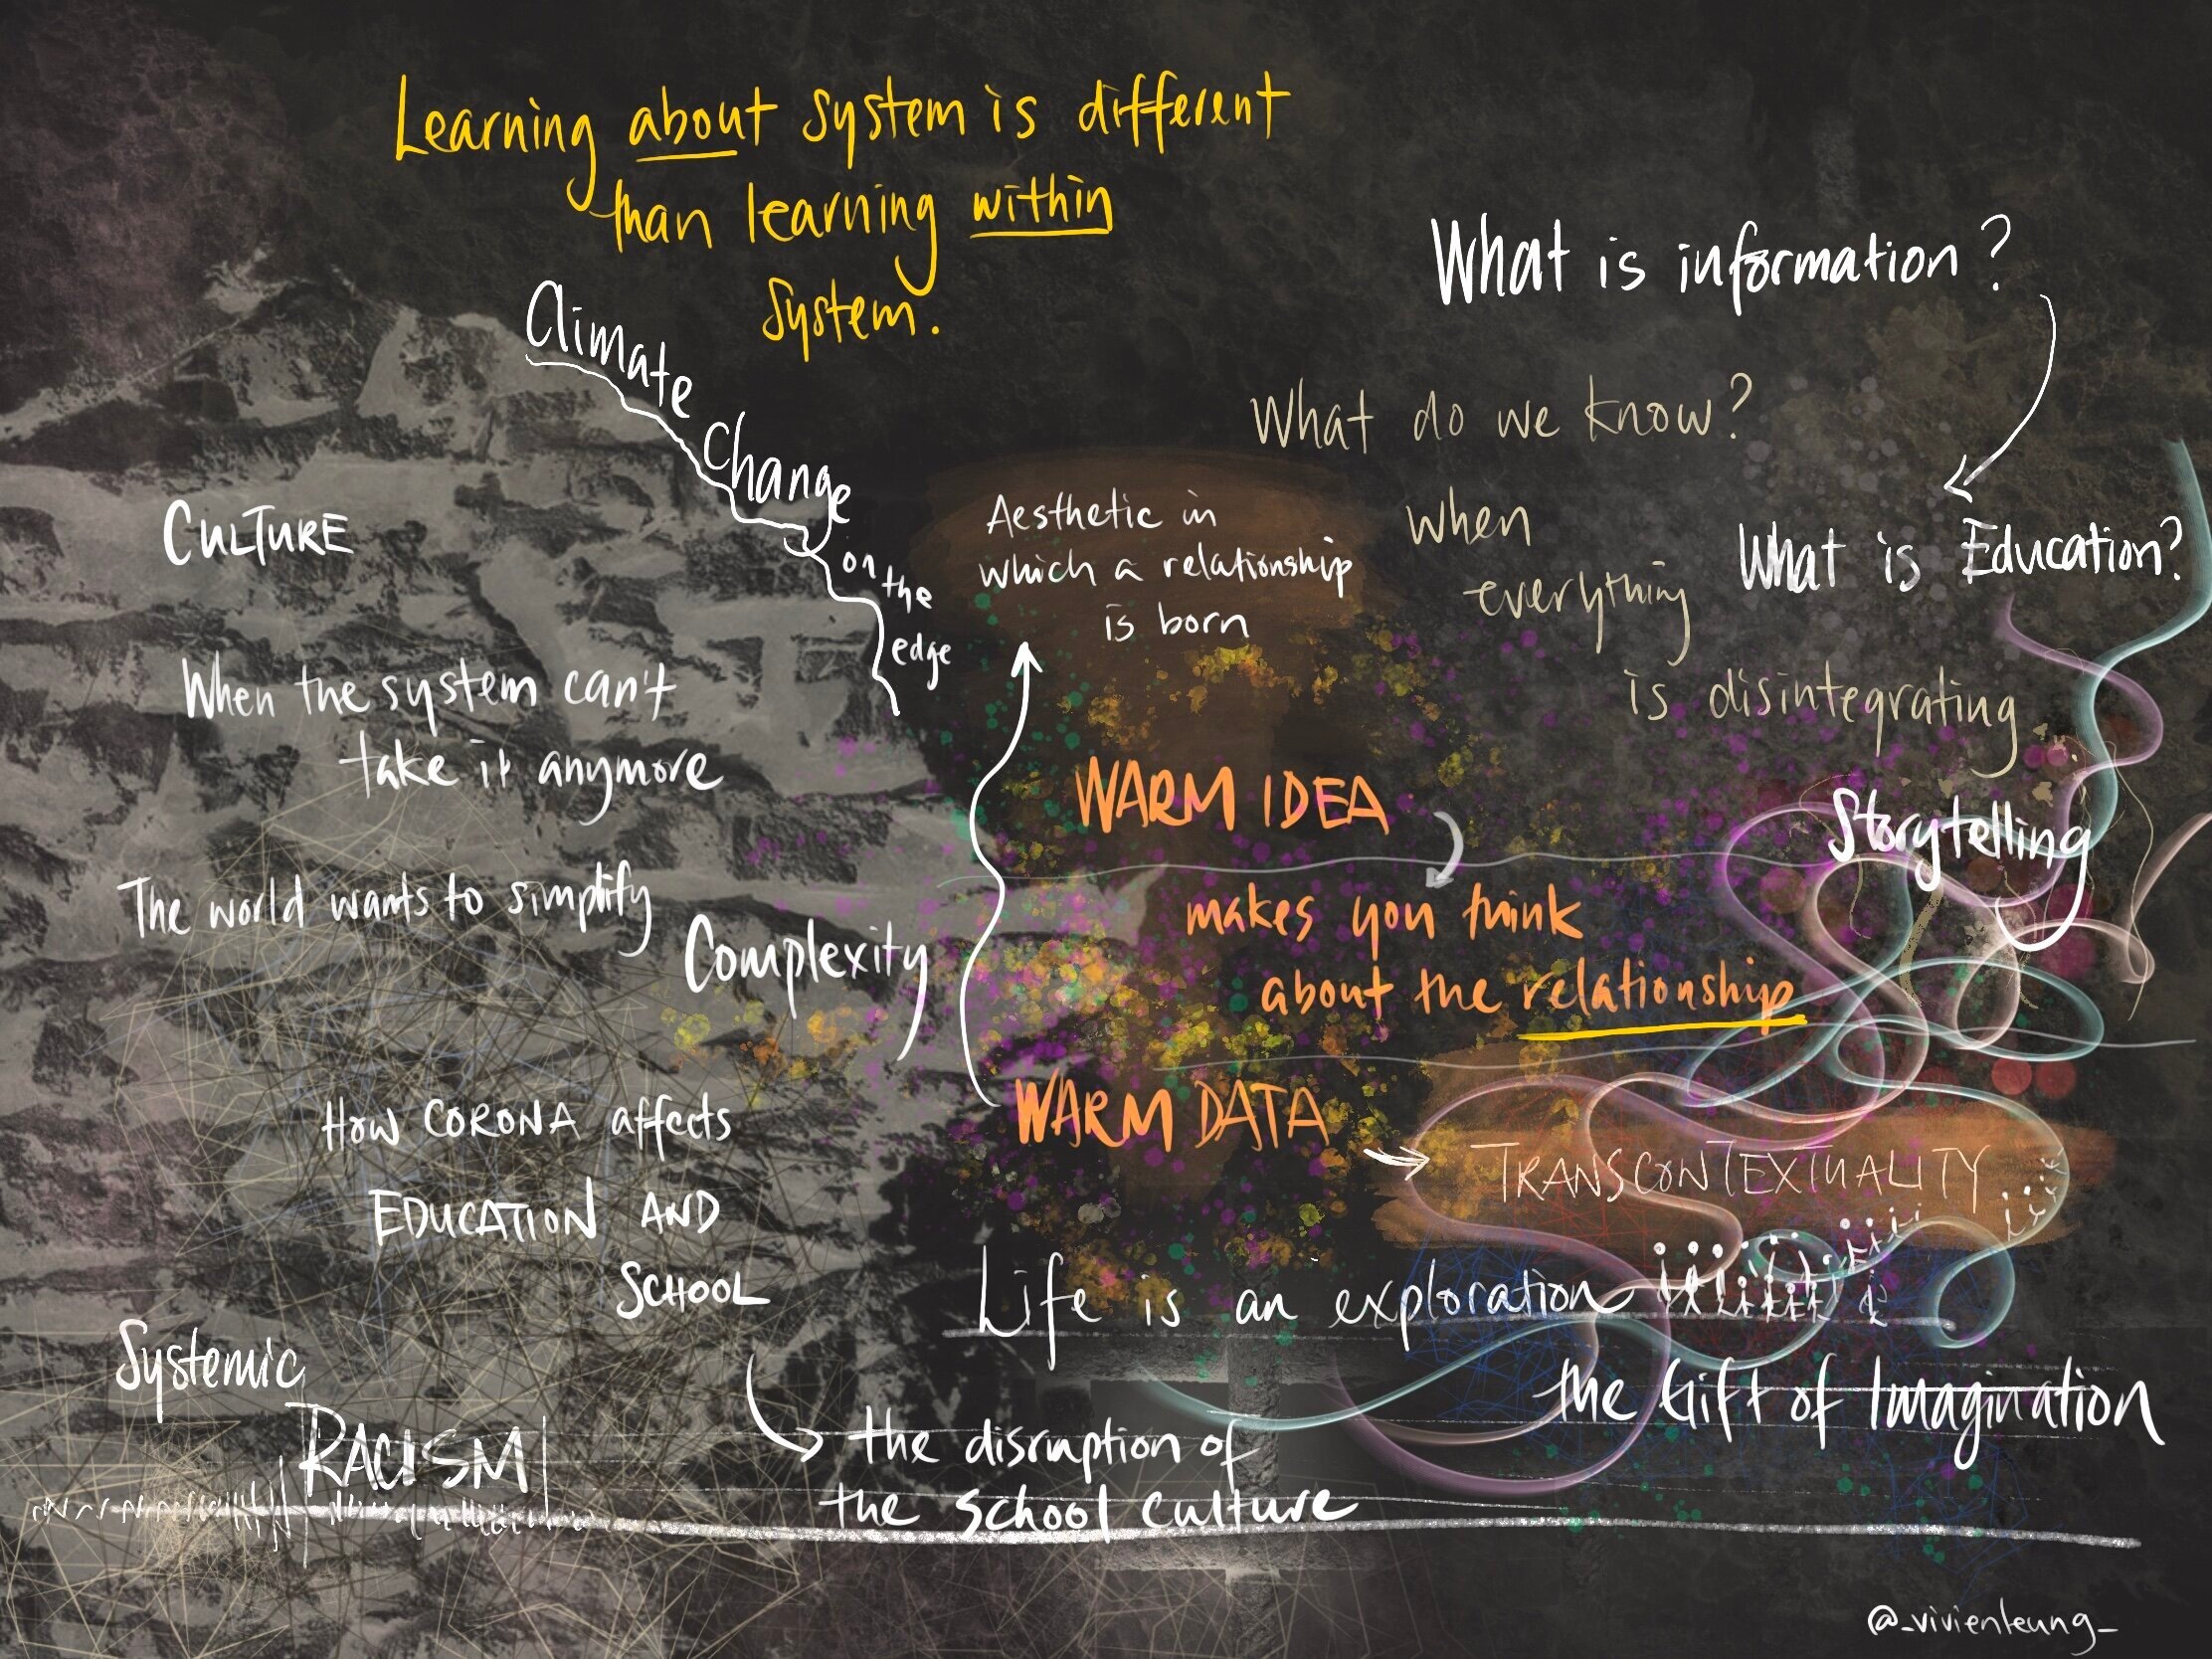 Learning about system is different
than learning within
system.
Climate
Change
on the
edge
CULTURE
When the system can't
take it anymore
The world wants to simplify
Complexity
How CORONA affects
EDUCATION AND
SCHOOL
Systemic
RACISM
the disruption of
the School culture
Aesthetic in
which a relationship
is born
WARM IDEA
makes you think
about the relationship
WARM DATA
TRANSCONTEXTUALITY
What is information?
What is Education?
What do we know?
when
everything
is disintegrating
Storytelling
Life is an exploration
the Gift of Imagination
@_vivienleung_